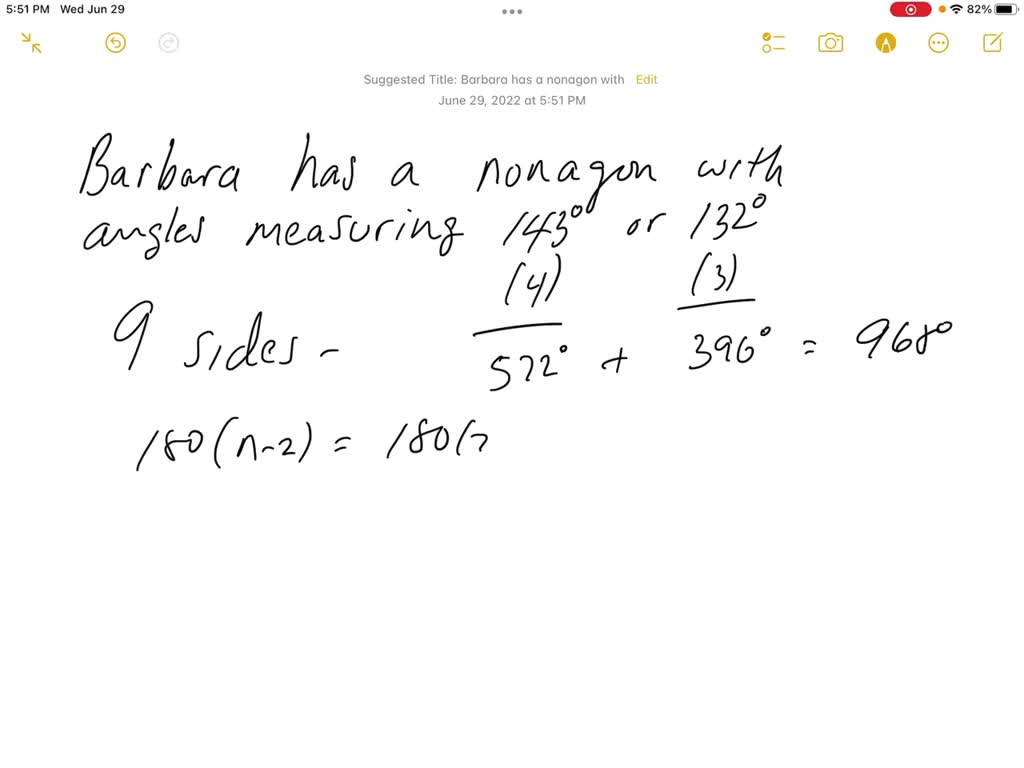 5:51 PM Wed Jun 29
82%
Suggested Title: Barbara has a nonagon with Edit
June 29, 2022 at 5:51 PM
Barbara has a nonagon with
angles measuring 143° or 132°
(4) (3)
9 sides - 572° + 396° = 968°
180(n-2) = 180(7